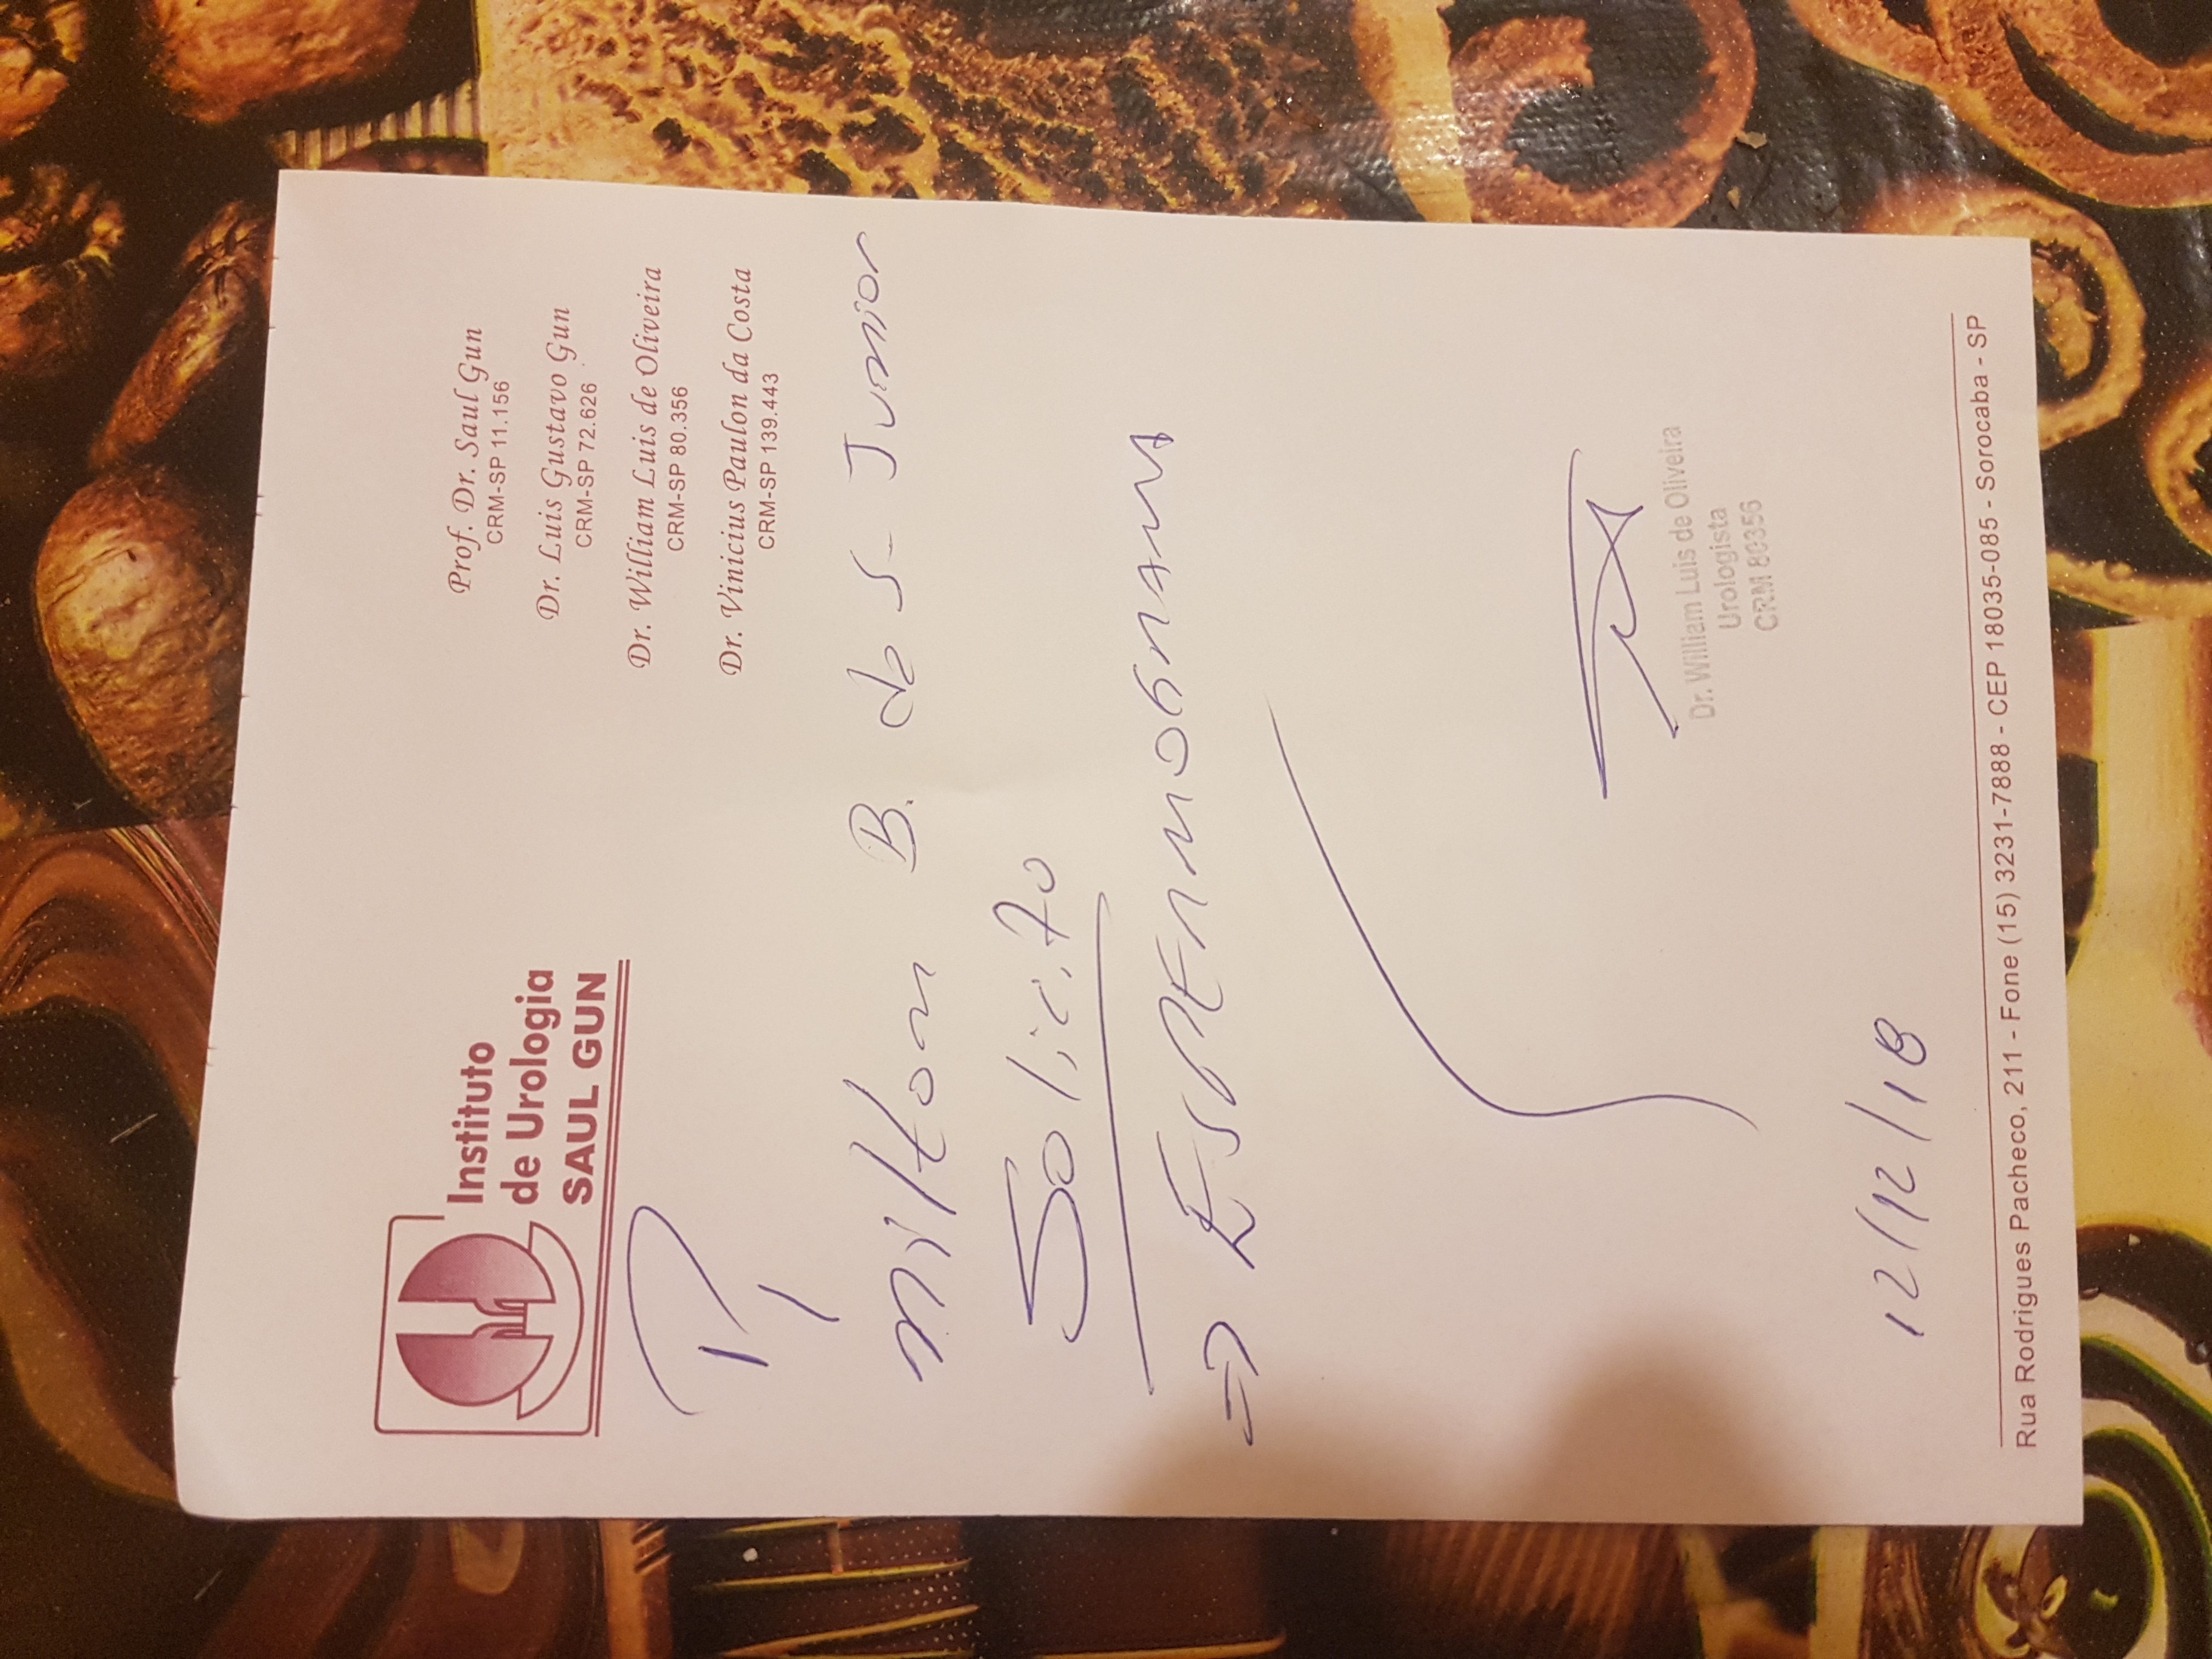 Instituto
de Urologia
SAUL GUN
Prof. Dr. Saul Gun
CRM-SP 11.156
Dr. Luis Gustavo Gun
CRM-SP 72.626
Dr. William Luis de Oliveira
CRM-SP 80.356
Dr. Vinicius Paulon da Costa
CRM-SP 139.443
P/
Milton B. de S. Junior
Solicito
=> ESPERMOGRAMA
Dr. William Luis de Oliveira
Urologista
CRM 80356
12/12/18
Rua Rodrigues Pacheco, 211 - Fone (15) 3231-7888 - CEP 18035-085 - Sorocaba - SP